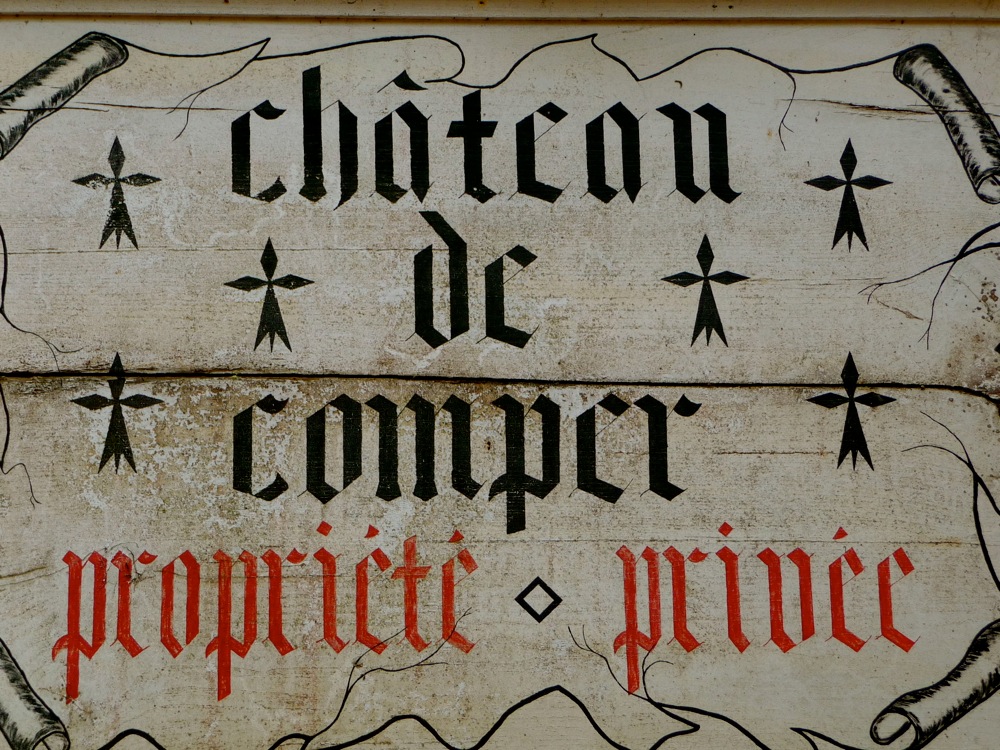 château
de
comper
propriété privée